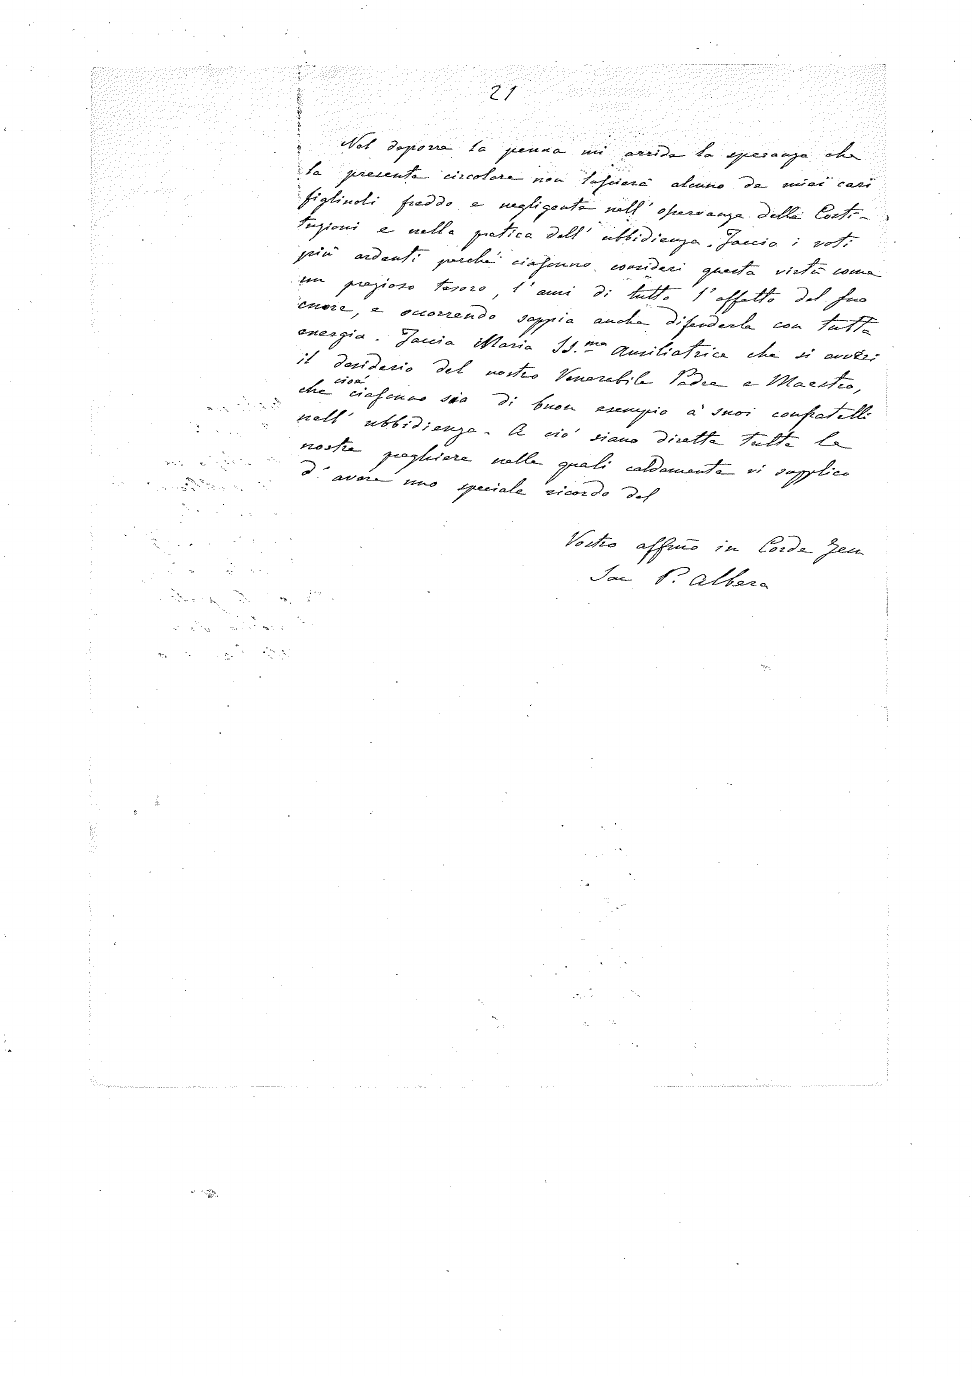 21
Nel deporre la penna mi arride la speranza che
la presente circolare non lascierà alcuno de miei cari
figliuoli freddo e negligente nell' osservanza delle Costi-
tuzioni e nella pratica dell' ubbidienza. Faccio i voti
più ardenti perché ciascuno consideri questa virtù come
un prezioso tesoro, l'ami di tutto l'affetto del suo
cuore, e occorrendo sappia anche difenderla con tutta
energia. Faccia Maria SS.ma Ausiliatrice che si avveri
il desiderio del nostro Venerabile Padre e Maestro,
che cioè ciascuno sia di buon esempio a' suoi confratelli
nell' ubbidienza. A ciò siano dirette tutte le
nostre preghiere nelle quali caldamente vi supplico
d' avere uno speciale ricordo del
Vostro affmo in Corde Jesu
Sac P. Albera